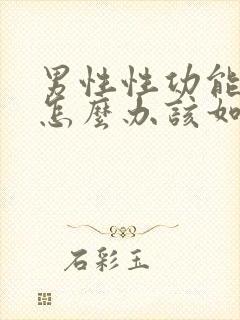 男性性功能
怎麼办該如
石彩玉